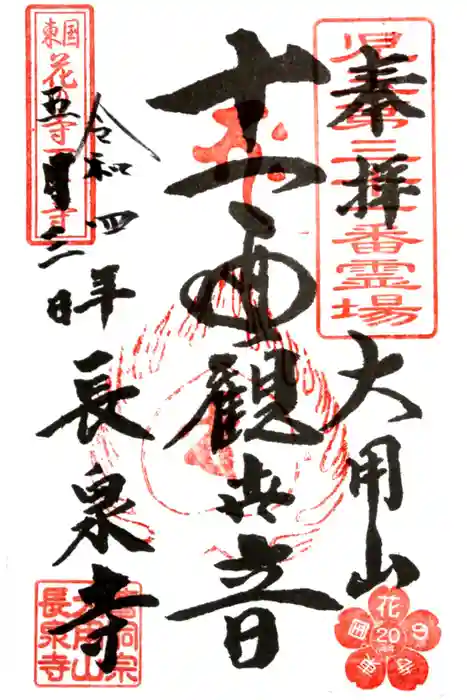 奉拝
大用山
十一面観世音
令和四年
五月三日
長泉寺
児玉第三十二番霊場
東国花の寺百ヶ寺
曹洞宗
大用山
長泉寺
花
20